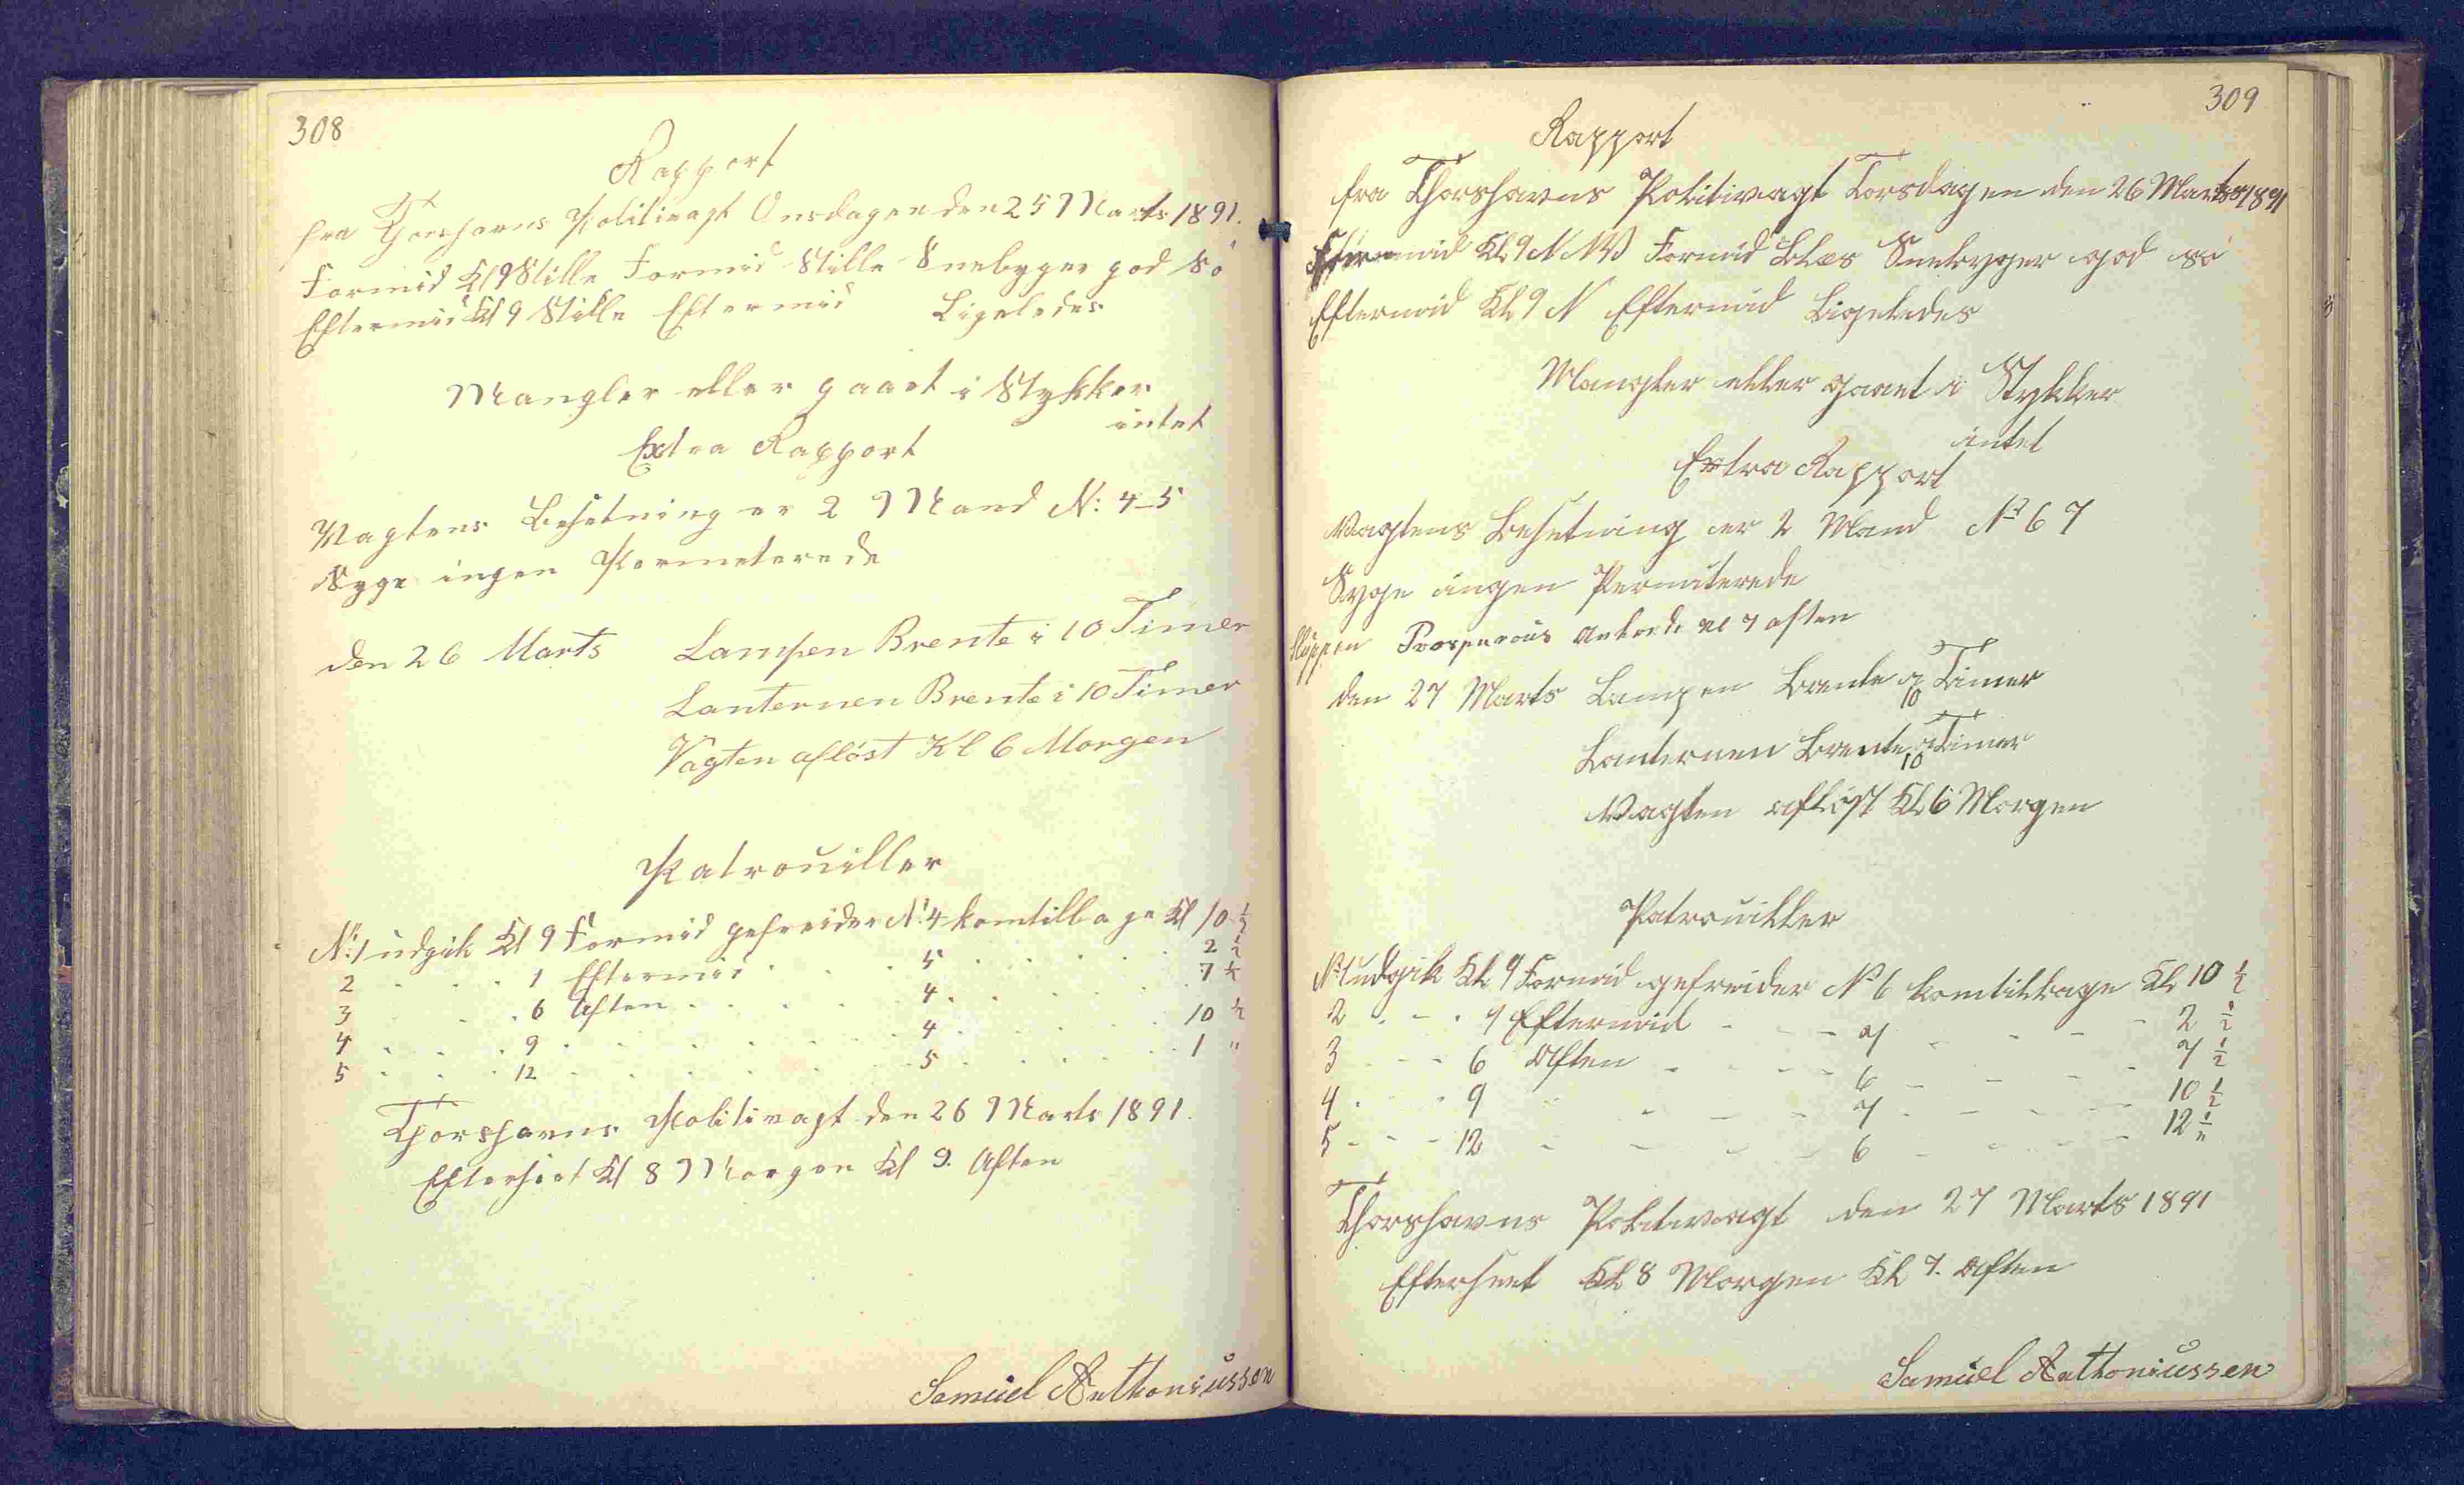 308
Rapport
fra Thorshavns Politivagt Onsdagen den 25 Marts 1891.
Formid Kl 9 Stille Formid Stille Snebyger god Sö
Eftermid Kl 9 Stille Eftermid Ligeledes
Mangler eller gaaet i Stykker
intet
Extra Rapport
Vagtens Besetning er 2 Mand N: 4-5
Syge ingen Permeterede
den 26 Marts Lampen Brente i 10 Timer
Lanternen Brente i 10 Timer
Vagten aflöst Kl 6 Morgen
Patrouiller
Nr: 1 udgik Kl 9 Formid gefreider Nr 4 kom tilbage Kl 10 1/2
2 . . . 1 Eftermid . . . 5 . . . . . 2 1/2
3 . . . 6 Aften . . . . 4 . . . . . 7 1/2
4 . . . 9 . . . . . . 4 . . . . . 10 1/2
5 . . . 12 . . . . . . 5 . . . . . 1 "
Thorshavns Politivagt den 26 Marts 1891.
Efterseet Kl 8 Morgen Kl 9. Aften
Samuel Anthoniussen
309
Rapport
fra Thorshavns Politivagt Torsdagen den 26 Marts 1891
Formid Kl 9 NNW Formid Blæs Snebyger god sö
Eftermid Kl 9 N Eftermid Ligeledes
Mangler eller gaaet i Stykker
intet
Extra Rapport
Vagtens Besetning er 2 Mand Nr 6 7
Syge ingen Permiterede
Sluppen Prosperous Ankrede Kl 7 aften
den 27 Marts Lampen Brente i 10 Timer
Lanternen Brente i 10 Timer
Vagten aflöst Kl 6 Morgen
Patrouiller
Nr 1 udgik Kl 9 Formid gefreider Nr 6 kom tilbage Kl 10 1/2
2 - - . 1 Eftermid - - - 7 - - - - 2 1/2
3 - - - 6 Aften - - - - 6 - - - - 7 1/2
4 . . 9 - - - - 7 - - - - 10 1/2
5 - - - 12 - - - - - 6 - - - - 12 1/"
Thorshavns Politivagt den 27 Marts 1891
Efterseet Kl 8 Morgen Kl 7. Aften
Samuel Anthoniussen